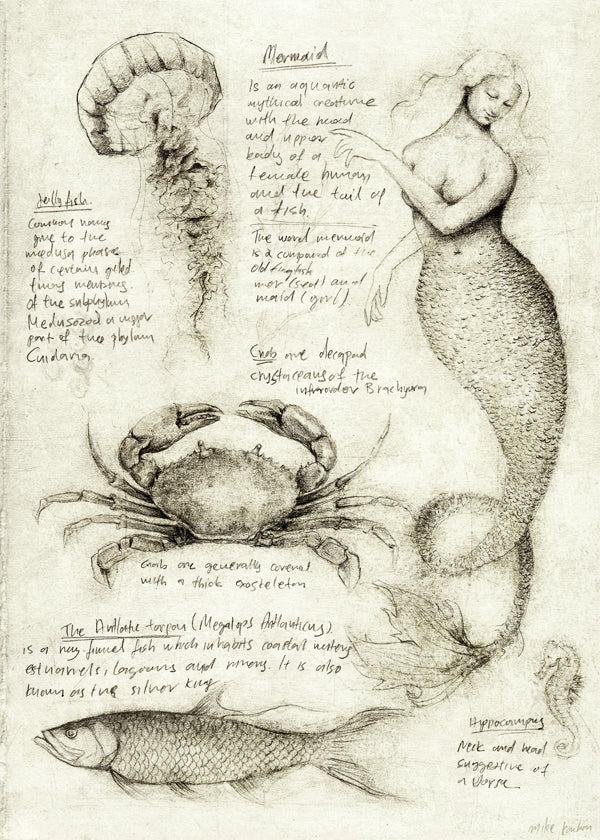 Mermaid
Is an aquantic
mythical creature
with the head
and upper
body of a
female human
and the tail of
a fish.
The word mermaid
is a compound of the
old English
mer (sea) and
maid (girl).
Jellyfish.
Common names
give to the
medusa phase
of certain
members.
of the subphylum
Medusozoa a major
part of the phylum
Cnidaria.
Crabs are decapod
crystaceans of the
infraorder Brachyura
Crabs are generally covered
with a thick exosteleton
The Atlantic tarpon (Megalops Atlanticus)
is a ray-finned fish which inhabits coastal waters
estuaries, lagoons and rivers. It is also
known as the silver king
Hippocampus
Neck and head
suggestive of
a horse
mike